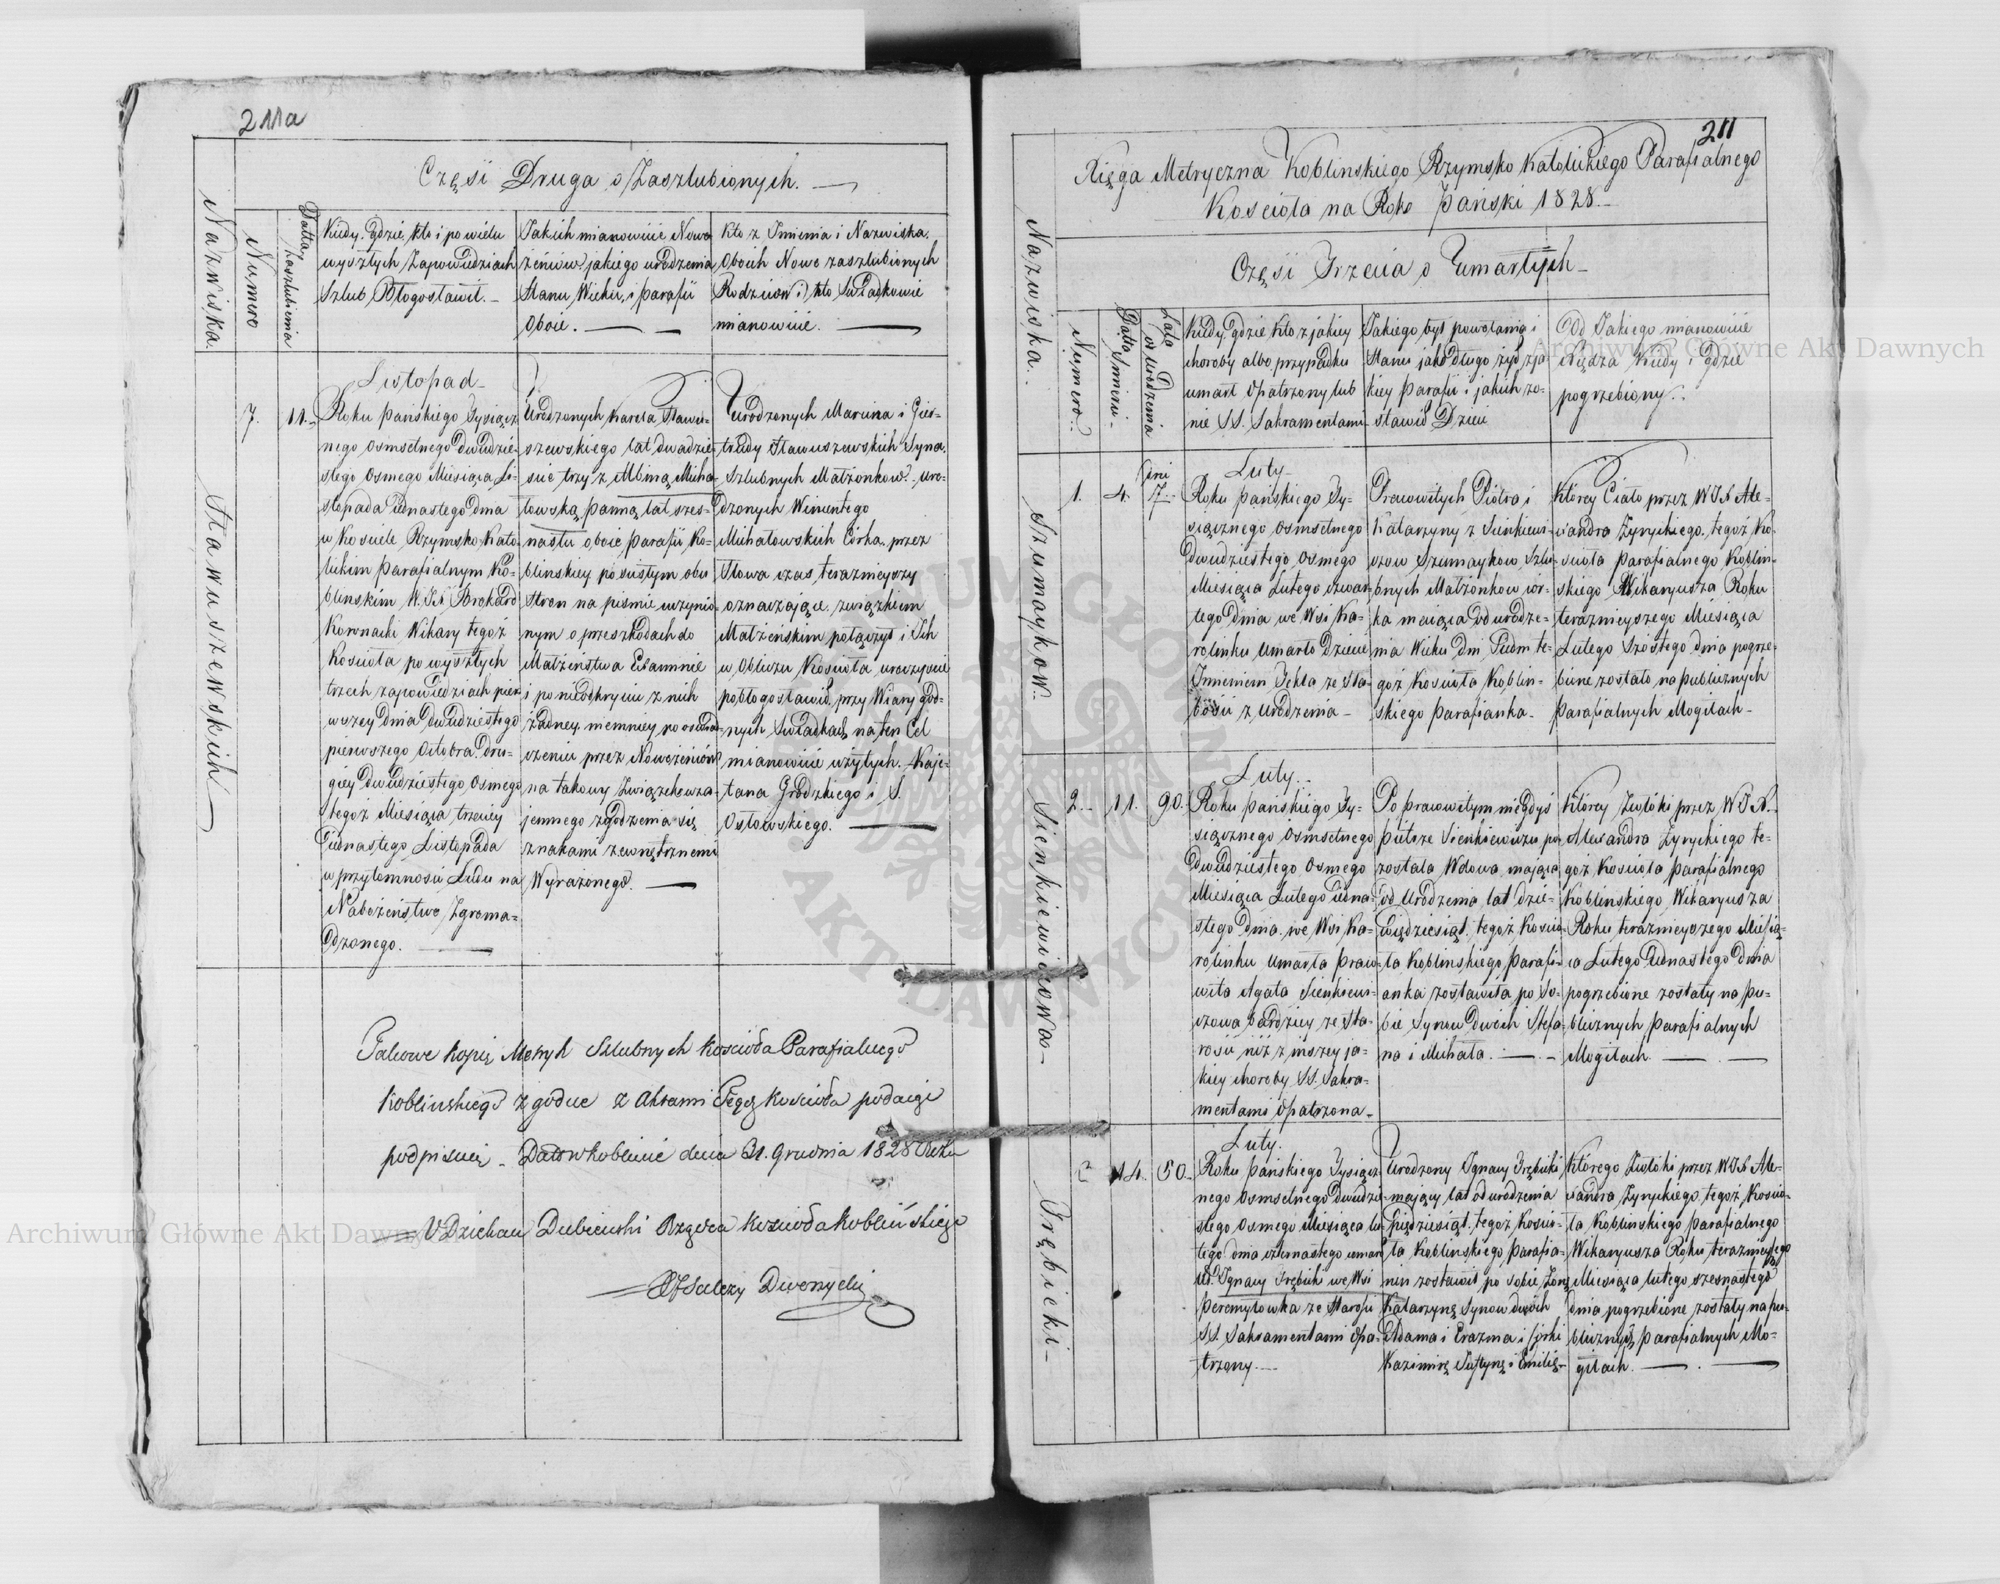 211a
Częsć Druga o Zaszlubionych.
Nazwiska.
Numero
Datta Zaszlubienia
Kiedy, gdzie, kto i po wielu
wyszłych Zapowiedziach
Szlub Błogosławił.
Jakich mianowicie Nowo
żeniów jakiego urodzenia
Stanu, Wieku, i Parafii
Oboie.
Kto z Imienia i Nazwiska.
Oboich Nowo zaszlubionych
Rodziców i kto Swiadkowie
mianowicie.
Sławuszewskich
7.
11.
Listopad
Roku Pańskiego Tysiącz
nego osmsetnego dwudzie-
stego osmego Miesiąca Li-
stopada iednastego dnia
w Kosciele Rzymsko Kato-
lickim Parafialnym Ko-
blinskim W. JX Brokard
Koronacki Wikary tegoż
Kosciola po wyszłych
trzech zapowiedziach pier
wszey dnia dwudziestego
pierwszego Octobra Dru-
giey dwudziestego osmego
tegoż Miesiąca trzeciey
Iednastego Listopada
w przytomnosci Ludu na
Nabożeństwo Zgroma-
dzonego.
Urodzonych Karola Sławu-
szewskiego lat dwadzie-
scie trzy z Albiną Micha-
łowską panną lat szes-
nastu oboie Parafii Ko-
blinskiey po scisłym obu
Stron na pismie uczynio-
nym o przeszkodach do
Małżenstwa Examinie
i po nieodkryciu z nich
żadney niemniey po oswiad-
czeniu przez Nowożeniów
na takowy Związek wza-
jemnego zgodzenia się
znakami zewnętrznemi
Wyrażonego.
Urodzonych Marcina i Gier-
trudy Sławuszewskich Syna.
Szlubnych Małżonkow. Uro-
dzonych Wincentego
Michałowskich Córka, przez
Słowa czas teraznieyszy
oznaczające związkiem
Małżeńskim połączył i Ich
w Obliczu Kosciola uroczyscie
pobłogosławił przy Wiary god-
nych Swiadkach na ten Cel
mianowicie użytych. Kaje-
tana Grodzkiego i S.
Ostowskiego.
Takowe kopię Metryk Szlubnych Kościoła Parafialnego
Koblinskiego zgodne z Aktami Tegoż Kościoła podaię i
podpisuię. Dat w Koblinie dnia 31. Grudnia 1828 Roku
V Dziekan Dubienski Rządca Kosciola Koblińskiego
211
Xięga Metryczna Koblinskiego Rzymsko Katolickiego Parafialnego
Kosciola na Rok Pański 1828.
Częsć Trzecia o Umarłych
Nazwiska.
Numero.
Datta Smierci.
Lata od Urodzenia
Kiedy, gdzie kto z jakiey
choroby albo przypadku
umarł opatrzony lub
nie SS. Sakramentami
Jakiego był powołania i
Stanu jak długo żył z ja-
kiey Parafii i jakich zo-
stawił Dzieci
Od Jakiego mianowicie
Xiędza Kiedy i gdzie
pogrzebiony.
Szumaykow.
1.
4.
Dni
7.
Luty
Roku Pańskiego Ty-
siącznego osmsetnego
dwudziestego osmego
Miesiąca Lutego czwar-
tego dnia we Wsi Ka-
rolinku umarło Dziecie
Imieniem Tekla ze Sła-
bości z urodzenia
Pracowitych Piotra i
Katarzyny z Sienkiewi-
czow Szumaykow, Szlu-
bnych Małżonkow cór-
ka maiąca od urodze-
nia Wieku dni Siedm te-
góż Kosciola Koblin-
skiego Parafianka.
Którey Ciało przez W JX Ale-
xandra Zyryckiego, tegoż Ko-
sciola Parafialnego Koblin-
skiego Wikaryusza Roku
teraznieyszego Miesiąca
Lutego Szóstego dnia pogrze-
bione zostało na publicznych
Parafialnych Mogiłach
Sienkiewiczowa
2.
11.
90.
Luty.
Roku Pańskiego Ty-
siącznego osmsetnego
dwudziestego osmego
Miesiąca Lutego iedna-
stego dnia we Wsi Ka-
rolinku umarła Praco-
wita Agata Sienkiewi-
czowa bardziey ze Sta-
rości niż z inszey ja-
kiey choroby SS. Sakra-
mentami opatrzona
Po pracowitym niegdyś
Pietrze Sienkiewiczu po-
zostala Wdowa, mająca
od Urodzenia lat dzie-
więdziesiąt, tegoż Koscio-
ła Koblinskiego, Parafi-
anka zostawiła po so-
bie Synow dwóch Stefa-
na i Michała.
Którey Zwłoki przez W JX.
Alexandra Zyryckiego te-
góż Kosciola Parafialnego
Koblinskiego Wikaryusza
Roku teraznieyszego Miesią-
ca Lutego Iednastego dnia
pogrzebione zostały na pu-
blicznych Parafialnych
Mogiłach.
Trębicki
3
14.
50.
Luty.
Roku Pańskiego Tysiącz
nego osmsetnego dwudzie
stego osmego Miesiąca lu-
tego dnia czternastego umarł
Ur. Ignacy Trębicki we Wsi
Peremyłowka ze Starości
SS. Sakramentami opa-
trzony
Urodzony Ignacy Trębicki
mający lat od urodzenia
Pięćdziesiąt, tegoż Koscio-
ła Koblinskiego Parafia-
nin zostawił po sobie Żonę
Katarzynę Synow dwóch
Adama i Erazma i Córki
Kazimirę Justynę i Emilię
Którego Zwłoki przez W JX Ale-
xandra Zyryckiego, tegoż Koscio-
ła Koblinskiego Parafialnego
Wikaryusza Roku teraznieyszego
Miesiąca lutego szesnastego
dnia pogrzebione zostały na pu-
blicznych Parafialnych Mo-
giłach.
Archiwum Główne Akt Dawnych
Archiwum Główne Akt Dawnych